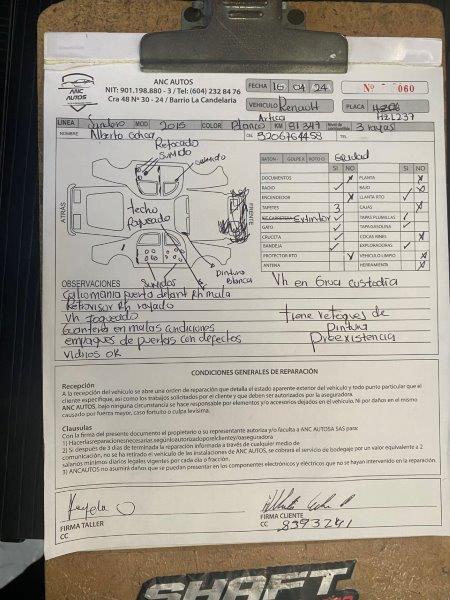 ANC AUTOS
NIT: 901.198.880 - 3 / Tel: (604) 232 84 76
Cra 48 Nº 30 - 24 / Barrio La Candelaria
ANC
AUTOS
FECHA 16 04 24
Nº 060
VEHICULO Renault
PLACA HZL237
LINEA Sandero MOD 2015 COLOR Blanco KM 91347 3 rayas
NOMBRE Alberto Ochoa CEL 3206764458
Retocado
Sumido
techo
Poqueado
Sumidos
Pintura
Blanca
ATRÁS
RAYON - GOLPE X ROTO O
SI NO SI NO
DOCUMENTOS PLANTA
RADIO BAJO
ENCENDEDOR LLANTA RTO
TAPETES 3 CAJAS
Extintor TAPAS PLUMILLAS
GATO TAPA GASOLINA
CRUCETA COCAS RINES
BANDEJA EXPLORADORAS
PROTECTOR RTO VEHICULO LIMPIO
ANTENA HERRAMIENTA
OBSERVACIONES
Vh en Grua Custodia
Calcomania puerta delant Rh mala
Retrovisor Rh rayado
Vh poqueado
Guantera en malas condiciones
empaques de puertas con defectos
Vidrios OK
tiene retoques de
Pintura
Preexistencia
CONDICIONES GENERALES DE REPARACIÓN
Recepción
A la recepción del vehículo se abre una orden de reparación que detalla el estado aparente exterior del vehículo y todo particular que el
cliente especifique, así como los trabajos solicitados por el cliente y que deben ser autorizados por la aseguradora.
ANC AUTOS, bajo ninguna circunstancia se hace responsable por elementos y/o accesorios dejados en el vehículo. Ni por daños en el mismo
causado por fuerza mayor, caso fortuito o culpa levísima.
Clausulas
Con la firma del presente documento el propietario o su representante autoriza y/o faculta a ANC AUTOSA SAS para:
1) Hacerlas reparaciones necesarias según lo autorizado por el cliente y/o aseguradora
2) Si después de 3 días de terminada la reparación informada a través de cualquier medio de
comunicación, no se ha retirado el vehículo de las instalaciones de ANC AUTOS, se cobrará el servicio de bodegaje por un valor equivalente a 2
salarios mínimos diarios legales vigentes por cada día o fracción.
3) ANCAUTOS no asumirá daños que se puedan presentar en los componentes electrónicos y eléctricos que no se hayan intervenido en la reparación.
FIRMA TALLER
CC
FIRMA CLIENTE
CC 8393241
SHAFT